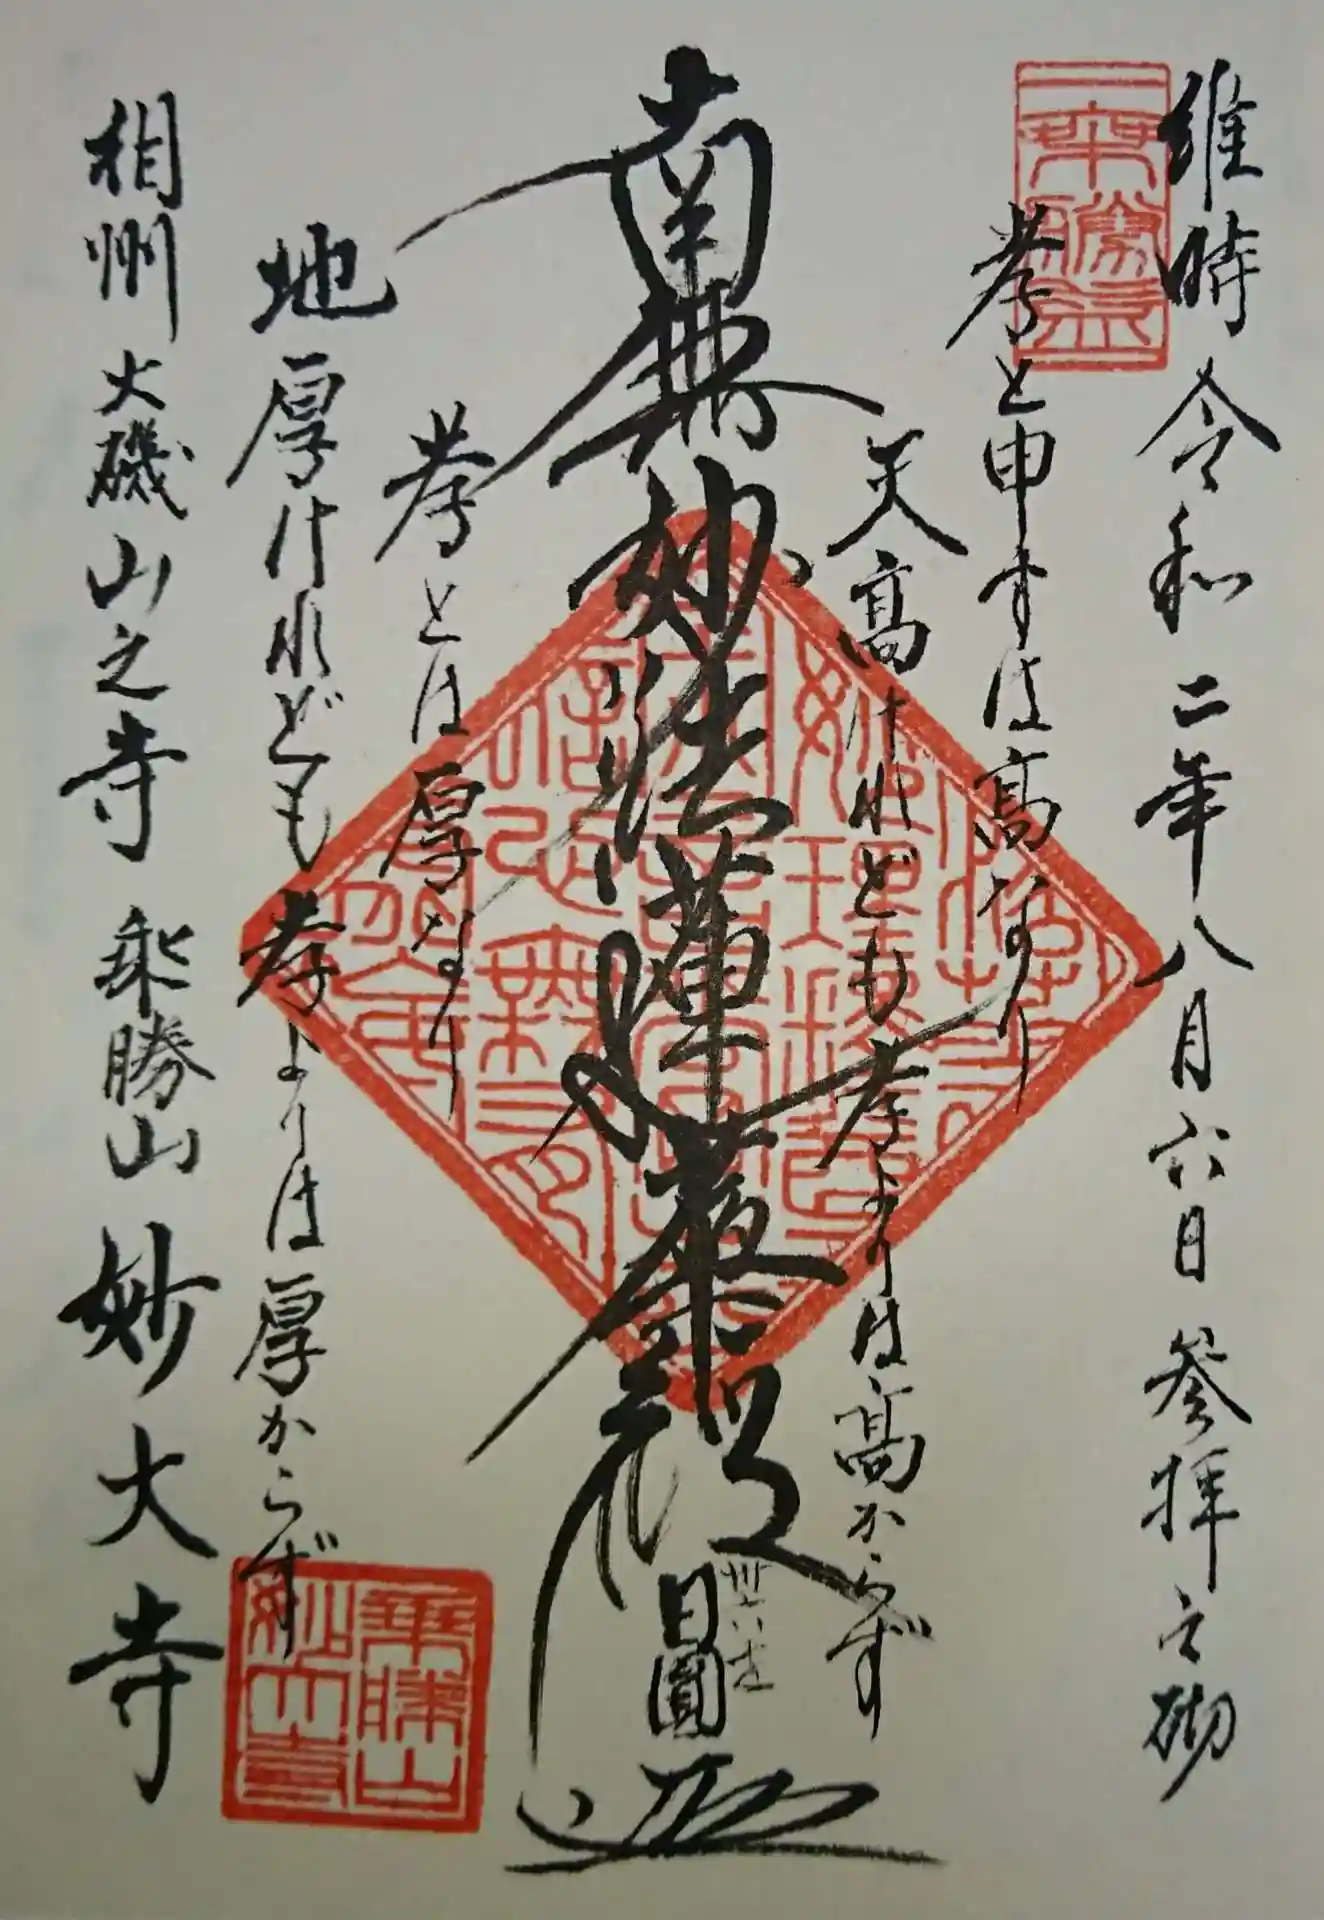 維時令和二年八月六日参拝之砌
孝と申すは高なり
天高けれども孝よりは高からず
南無妙法蓮華経
丗六世
日圓
孝とは厚なり
地厚けれども孝よりは厚からず
相州大磯山之寺乗勝山妙大寺
乗勝山
妙大寺